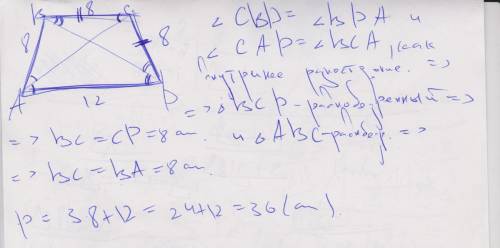 B 8 C
8 8
A 12 D
∠CBD = ∠BDA и
∠CAD = ∠BCA, как
внутрнее разностение. =>
=> △BCD - равнобедренный =>
=> BC = CD = 8 см. и △ABC - равнобед. =>
=> BC = BA = 8 см.
P = 3·8+12 = 24+12 = 36 (см).